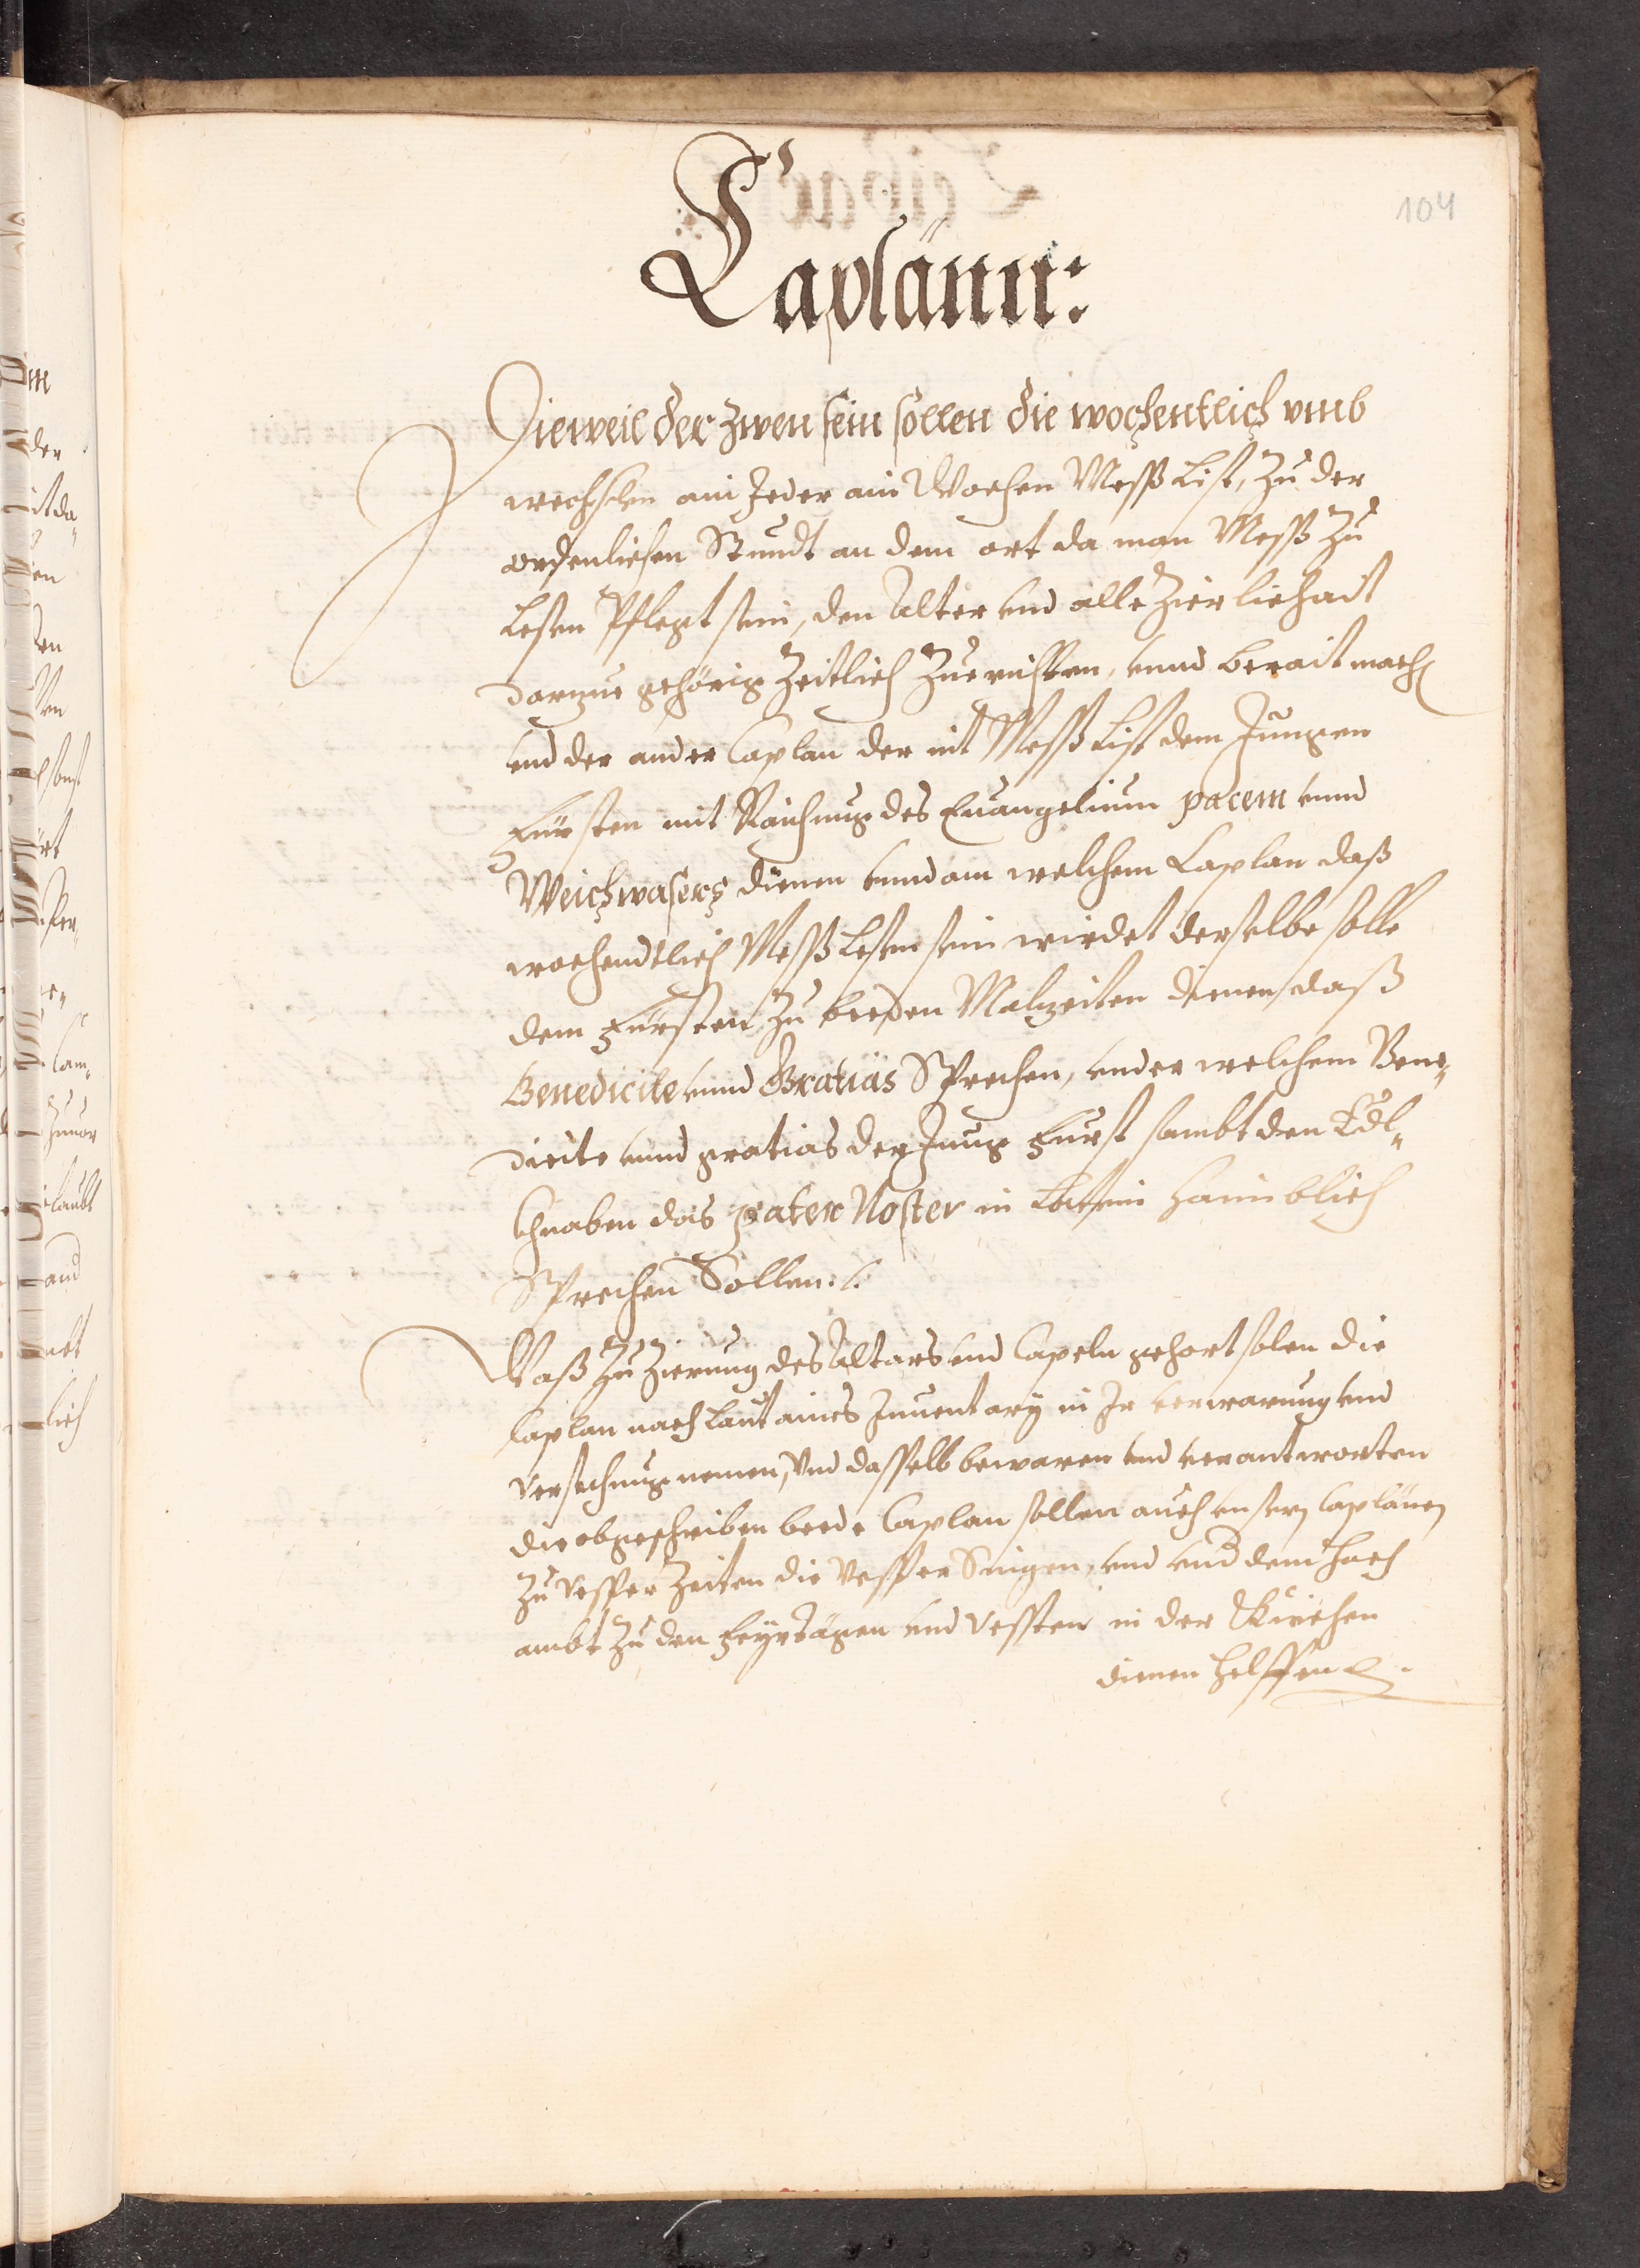 104
Caplänn:
Dieweil der zwen sein sollen die wochentlich vmb
wechslen ain Jeder ain Wochen Mess List, zu der
ordenlichen Stundt an dem ort da man Mess zu
Lesen Pflegt sein, den Alter vnd alle Zierlichait
darzue gehörig Zeitlich Zuerichten, vnnd berait mach
vnd der ander Caplan der nit Mess List dem Jungen
Fürsten mit Raichung des Euangelium pacem vnnd
Weichwasers dienen vnnd am welchem Caplan daß
wochendtlich Mess Lesen sein wirdet derselbe solle
dem Fürsten zu beeden Malzeiten dienen, daß
Benedicite vnnd Gratias Sprechen, vnder welchem Bene„
dicite vnnd gratias der Jung Fürst sambt den Edl„
Chnaben das pater Noster in Latein haimblich
Sprechen Sollen :/:
Waß zu Zierung des Altars vnd Capeln gehort solen die
Caplan nach laut aines Inuentary in Ir verwarung vnd
Versechnug nemen, Vnd dasselb bewaren vnd verantworten
die obgeschriben beede Caplan sollen auch vnsern Caplänen
zu Vesper Zeiten die Vesper Singen, vnd vnd dem hoch
ambt zu den Feyrtägen vnd Vessten in der Kirchen
dienen helffen